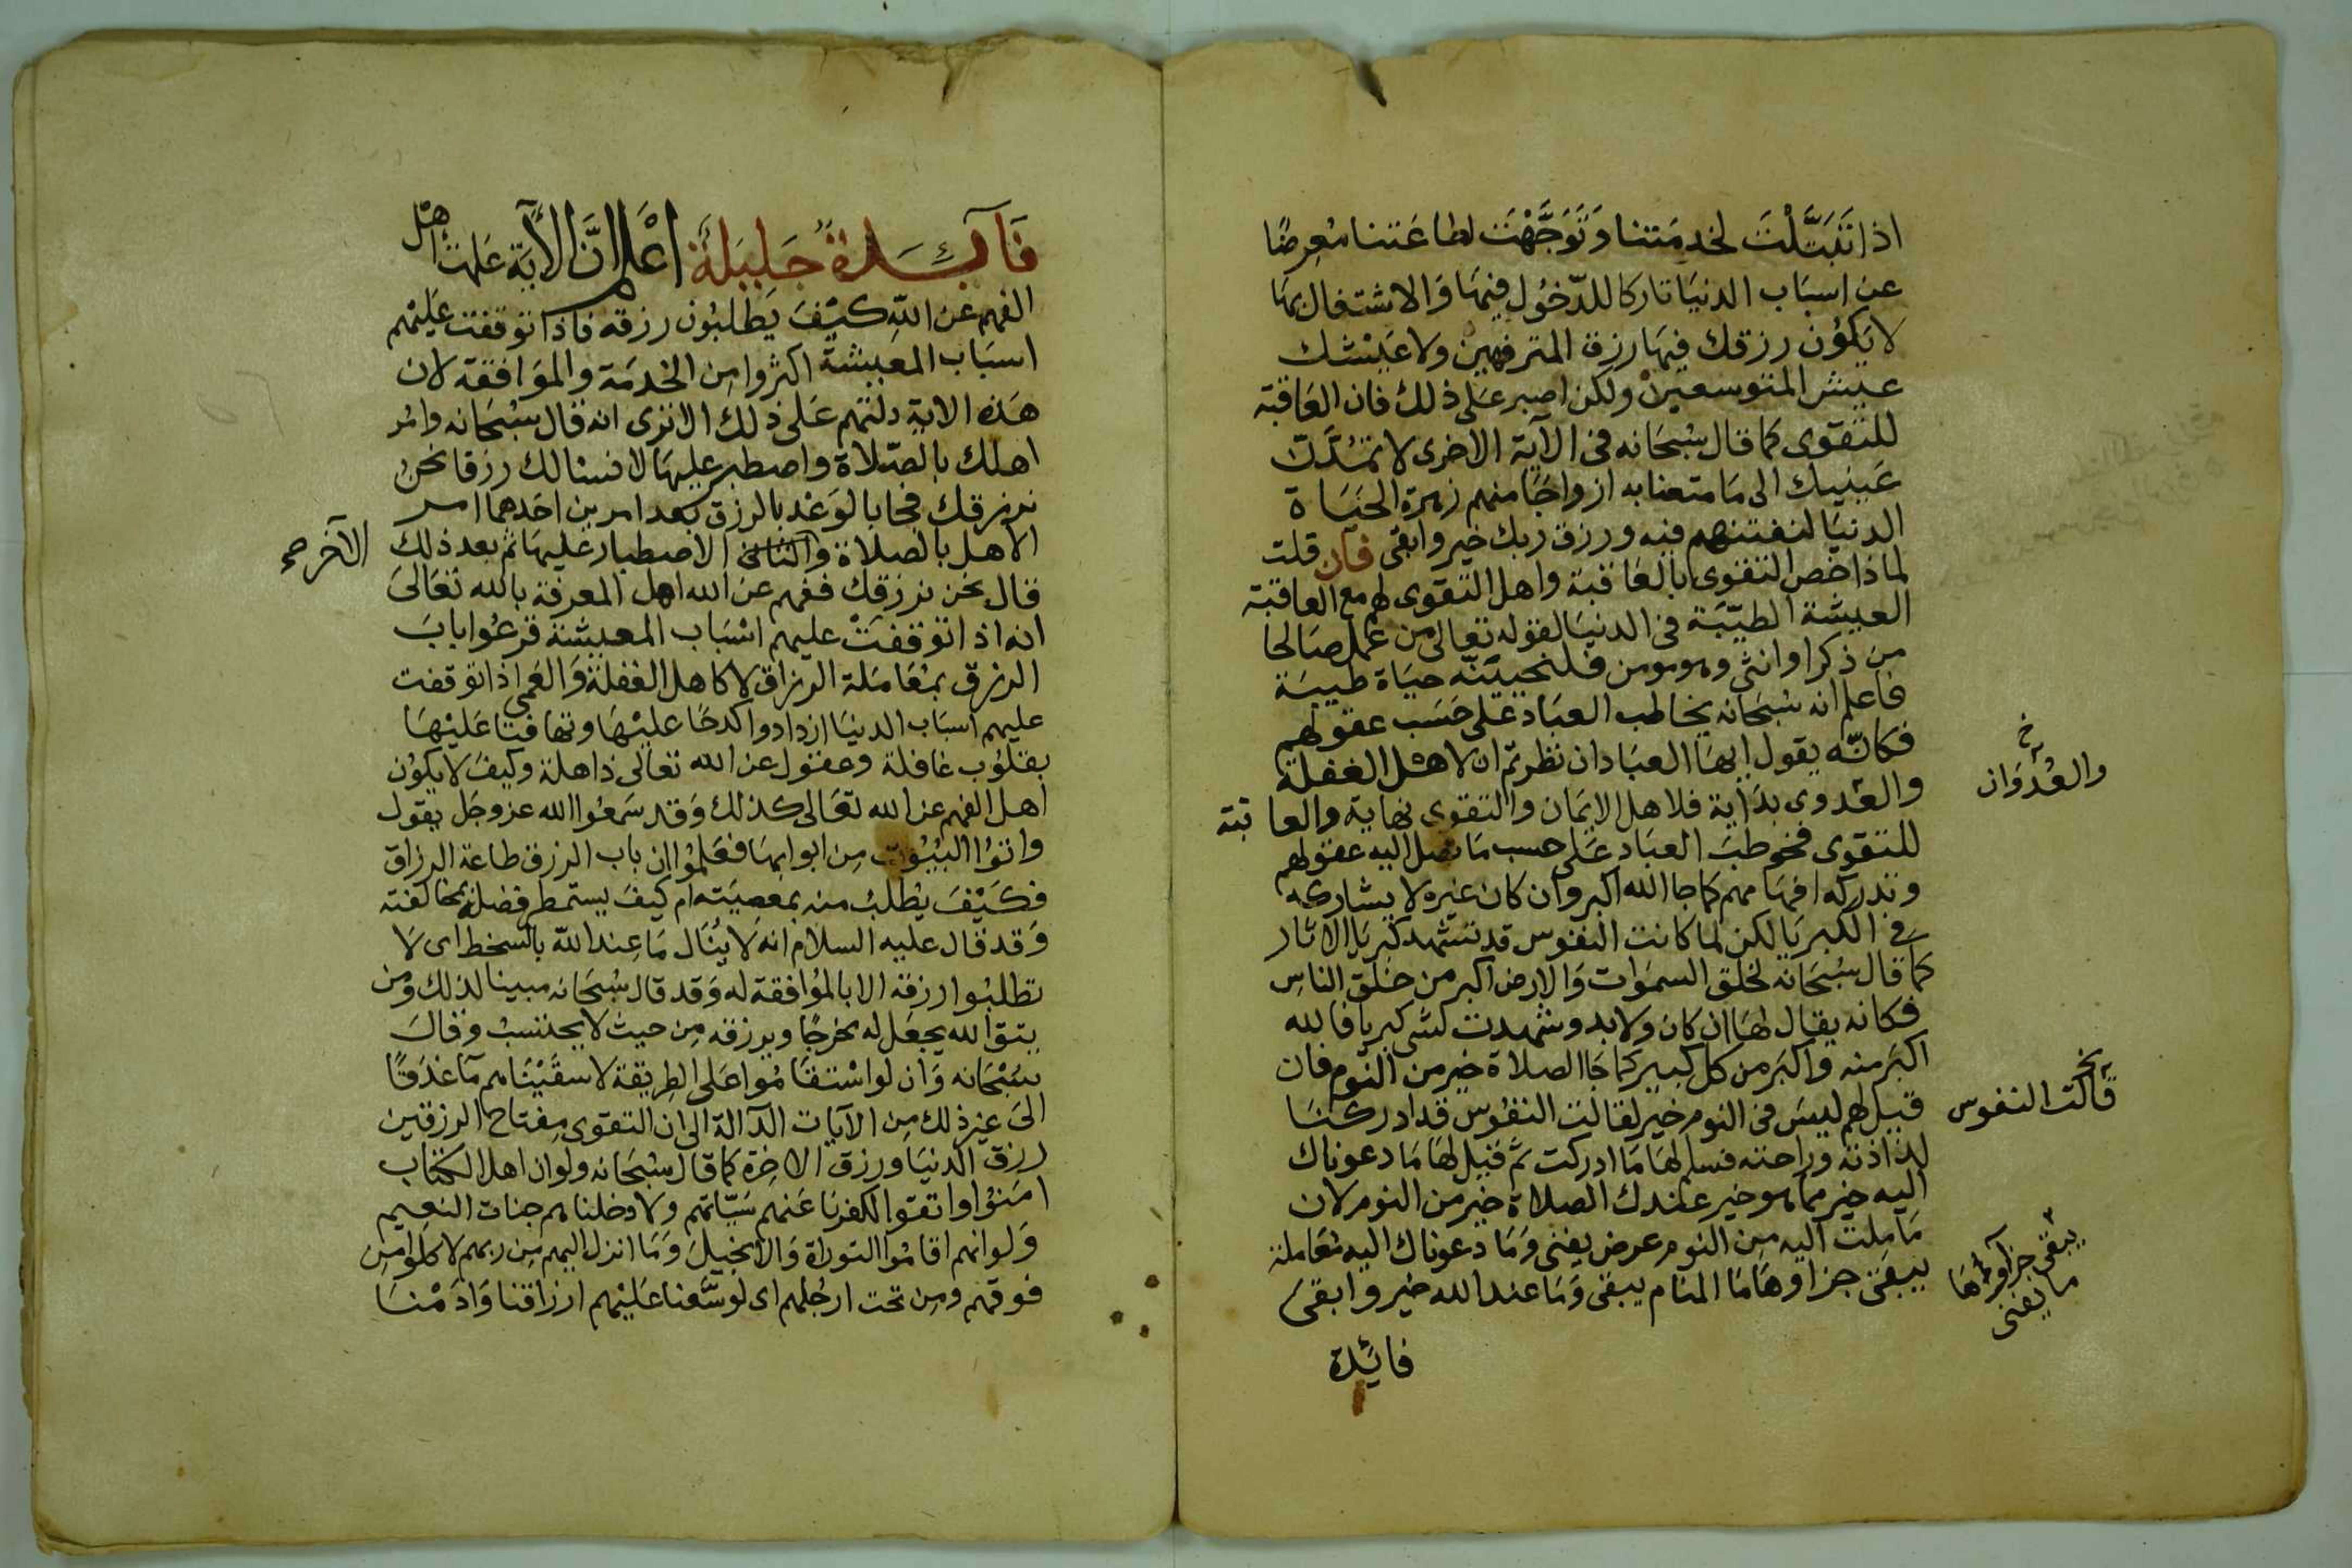 اذا تَبَتَّلْتَ لخدمَتنا وَتَوَجَّهْتَ لطاعَتنا مُعرِضًا
عن اسبَاب الدنيَا تاركا للدّخُول فيهَا وَالاشتغال بهَا
لا يَكوُن رزقك فيهَا رزق المترفهين ولا عَيْشك
عيش المتوسعين ولكن اصبر عَلى ذلك فان العَاقبَة
للتقوى كما قال سُبحَانه فى الآية الاخرى لا تمُدَّنّ
عَينيك الى مَا متعنا به ازواجًا منهم زهرة الحَيَاة
الدنيَا لنفتنهم فيه ورزق ربك خير وابقى فان قلت
لماذا خص التقوى بالعَاقبة واهل التقوى لهم مع العاقبة
العيشة الطيّبَة فى الدنيَا لقوله تعالى من عمل صَالحا
من ذكر او انثى وهو مومن فلنحيينّه حيَاة طيبَة
فاعلم انه سُبحَانه يخاطب العبَاد عَلى حَسَب عقولهم
فكانّه يقول ايهَا العبَاد ان نظرتم ان لاهل الغفلة
والعَدوى بدَاية فلاهل الايمَان والتقوى نهَاية والعاقبة
والعُدْوَان خ
للتقوى فخوطبَ العبَاد عَلى حسب مَا تصل اليه عقولهم
وتدركه افهَامهم كما جا الله اكبر وان كان غيره لا يشاركه
فى الكبريا لكن لما كانت النفوس قد تشهد كبريا الاثار
كما قال سُبحَانه لخلق السموَات وَالارض اكبر من خلق الناس
فكانه يقال لهَا ان كان ولابد وشهدت لشى كبريا فالله
اكبَر منه واكبَر من كل كبير كما جَا الصلاة خير من النوم فان
قيل لهم ليسَ فى النوم خير لقالت النفوس قد ادركنَا
قالت النفوس نخ
لذاذته وراحته فسلم لهَا مَا ادركت ثمّ قيل لهَا مَا دعوناك
اليه خير مما هو خير عندك الصلاة خير من النوم لان
مَا مِلت اليه مِن النوم عرض يفنى وَمَا دعوناك اليه مُعَاملة
يبقَى جزاوهَا مَا المنام يبقى وَمَا عند الله خير وابقى
يبقى جزاوها
ما يفنى
فائدة
فَآئدةٌ جَليلَةٌ اعْلم انَّ الآيَة عَلمت اهْل
الفهم عن اللهِ كيْفَ يَطلبُون رزقه فاذا توقفت عَليْهم
اسبَاب المعيشة اكثروا مِن الخدمَة والموَافقة لان
هَذه الاية دلتهم عَلى ذلك الا ترى انه قال سُبْحَانه وامُر
اهلك بالصّلاة واصطبر عليهَا لا نسالك رزقا نحن
نرزقك فجا بالوَعْد بالرزق بعد امرين احَدهما امر
الاهل بالصلاة والثانى الاصطبار عَليهَا ثم بعد ذلك
الآخر صح
قال نحن نرزقك ففهم عن الله اهل المعرفة بالله تعَالى
انه اذا توقفتْ عليهم اسْبَاب المعيشة قرعُوا بابَ
الرزق بمُعَامَلة الرزاق لا كاهل الغفلة وَالعَمى اذا توقفت
عليهم اسبَاب الدنيَا ازدادوا كدحًا عليْهَا وتهَافتا عَليْهَا
بقلوُب غافلة وعقول عن الله تعَالى ذاهلة وكيفَ لا يكوُن
اهل الفهم عن الله تعَالى كذلك وَقد سَمعُوا الله عز وجَل يقول
واتوُا البُيُوت مِن ابوابهَا فعَلموُا ان باب الرزق طاعة الرزاق
فكَيْفَ يُطلبُ منه بمعصيَته ام كيفَ يستمطر فضله بمخالفته
وَقد قال عليه السلام انه لا يُنَال مَا عِند اللهِ بالسخط اى لا
تطلبُوا رزقه الا بالموُافقة له وَقد قال سُبحَانه مبينا لذلك ومن
يتق الله يجعَل له مخرجًا ويرزقه مِن حيث لا يحتسبْ وقالَ
سُبْحَانه وَان لو اسْتقَامُوا عَلى الطريقة لاسقَيْنَاهم مآ غَدَقًا
الىَ غير ذلك مِن الآيات الدآلة الى ان التقوى مِفتاح الرزقين
رزق الدنيَا ورزق الاخرَة كما قال سُبحَانه ولو ان اهل الكتاب
امَنوُا واتقوا لكفرنا عَنهم سَيّاتهم ولادخلناهم جنات النعيم
وَلو انهم اقامُوا التورَاة وَالانجيلَ وَمَا انزل اليهم مِن ربهم لاكلوا مِن
فوقهم ومِن تحت ارجُلهم اى لوَسَّعنا عَليْهم ارزاقنا وَادَمْنَا